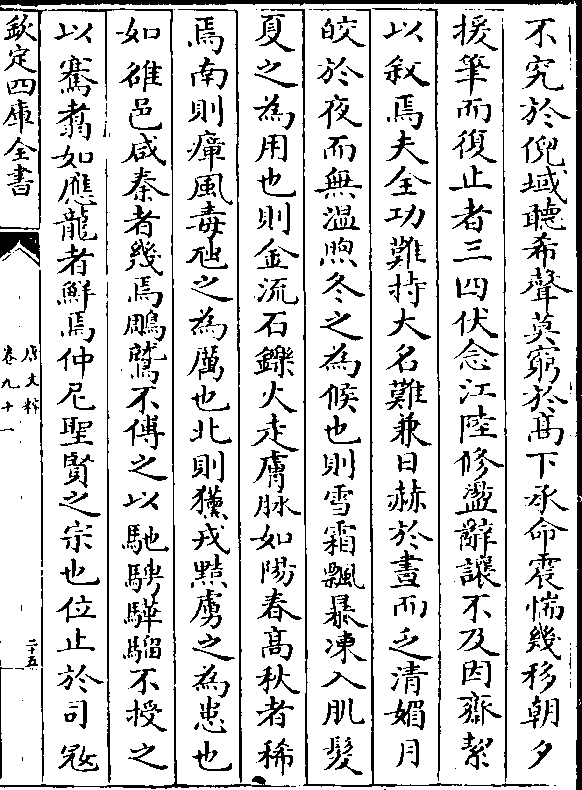 不究於倪域聽希聲莫窮於髙下承命震惴幾移朝夕
援筆而復止者三四伏念江陸修濫辭讓不及因齋絜
以敘焉夫全功難持大名難兼日赫於晝而乏清媚月
皎於夜而無温煦冬之為候也則雪霜飄暴凍入肌髮
夏之為用也則金流石鑠火走膚脉如陽春髙秋者稀
焉南則瘴風毒虺之為厲也北則獯戎黠虜之為患也
如雒邑咸秦者幾焉鵰鷲不傅之以馳騁驊騮不授之
以騫翥如應龍者鮮焉仲尼聖賢之宗也位止於司寇
欽定四庫全書
唐文粹
卷九十一
二十五